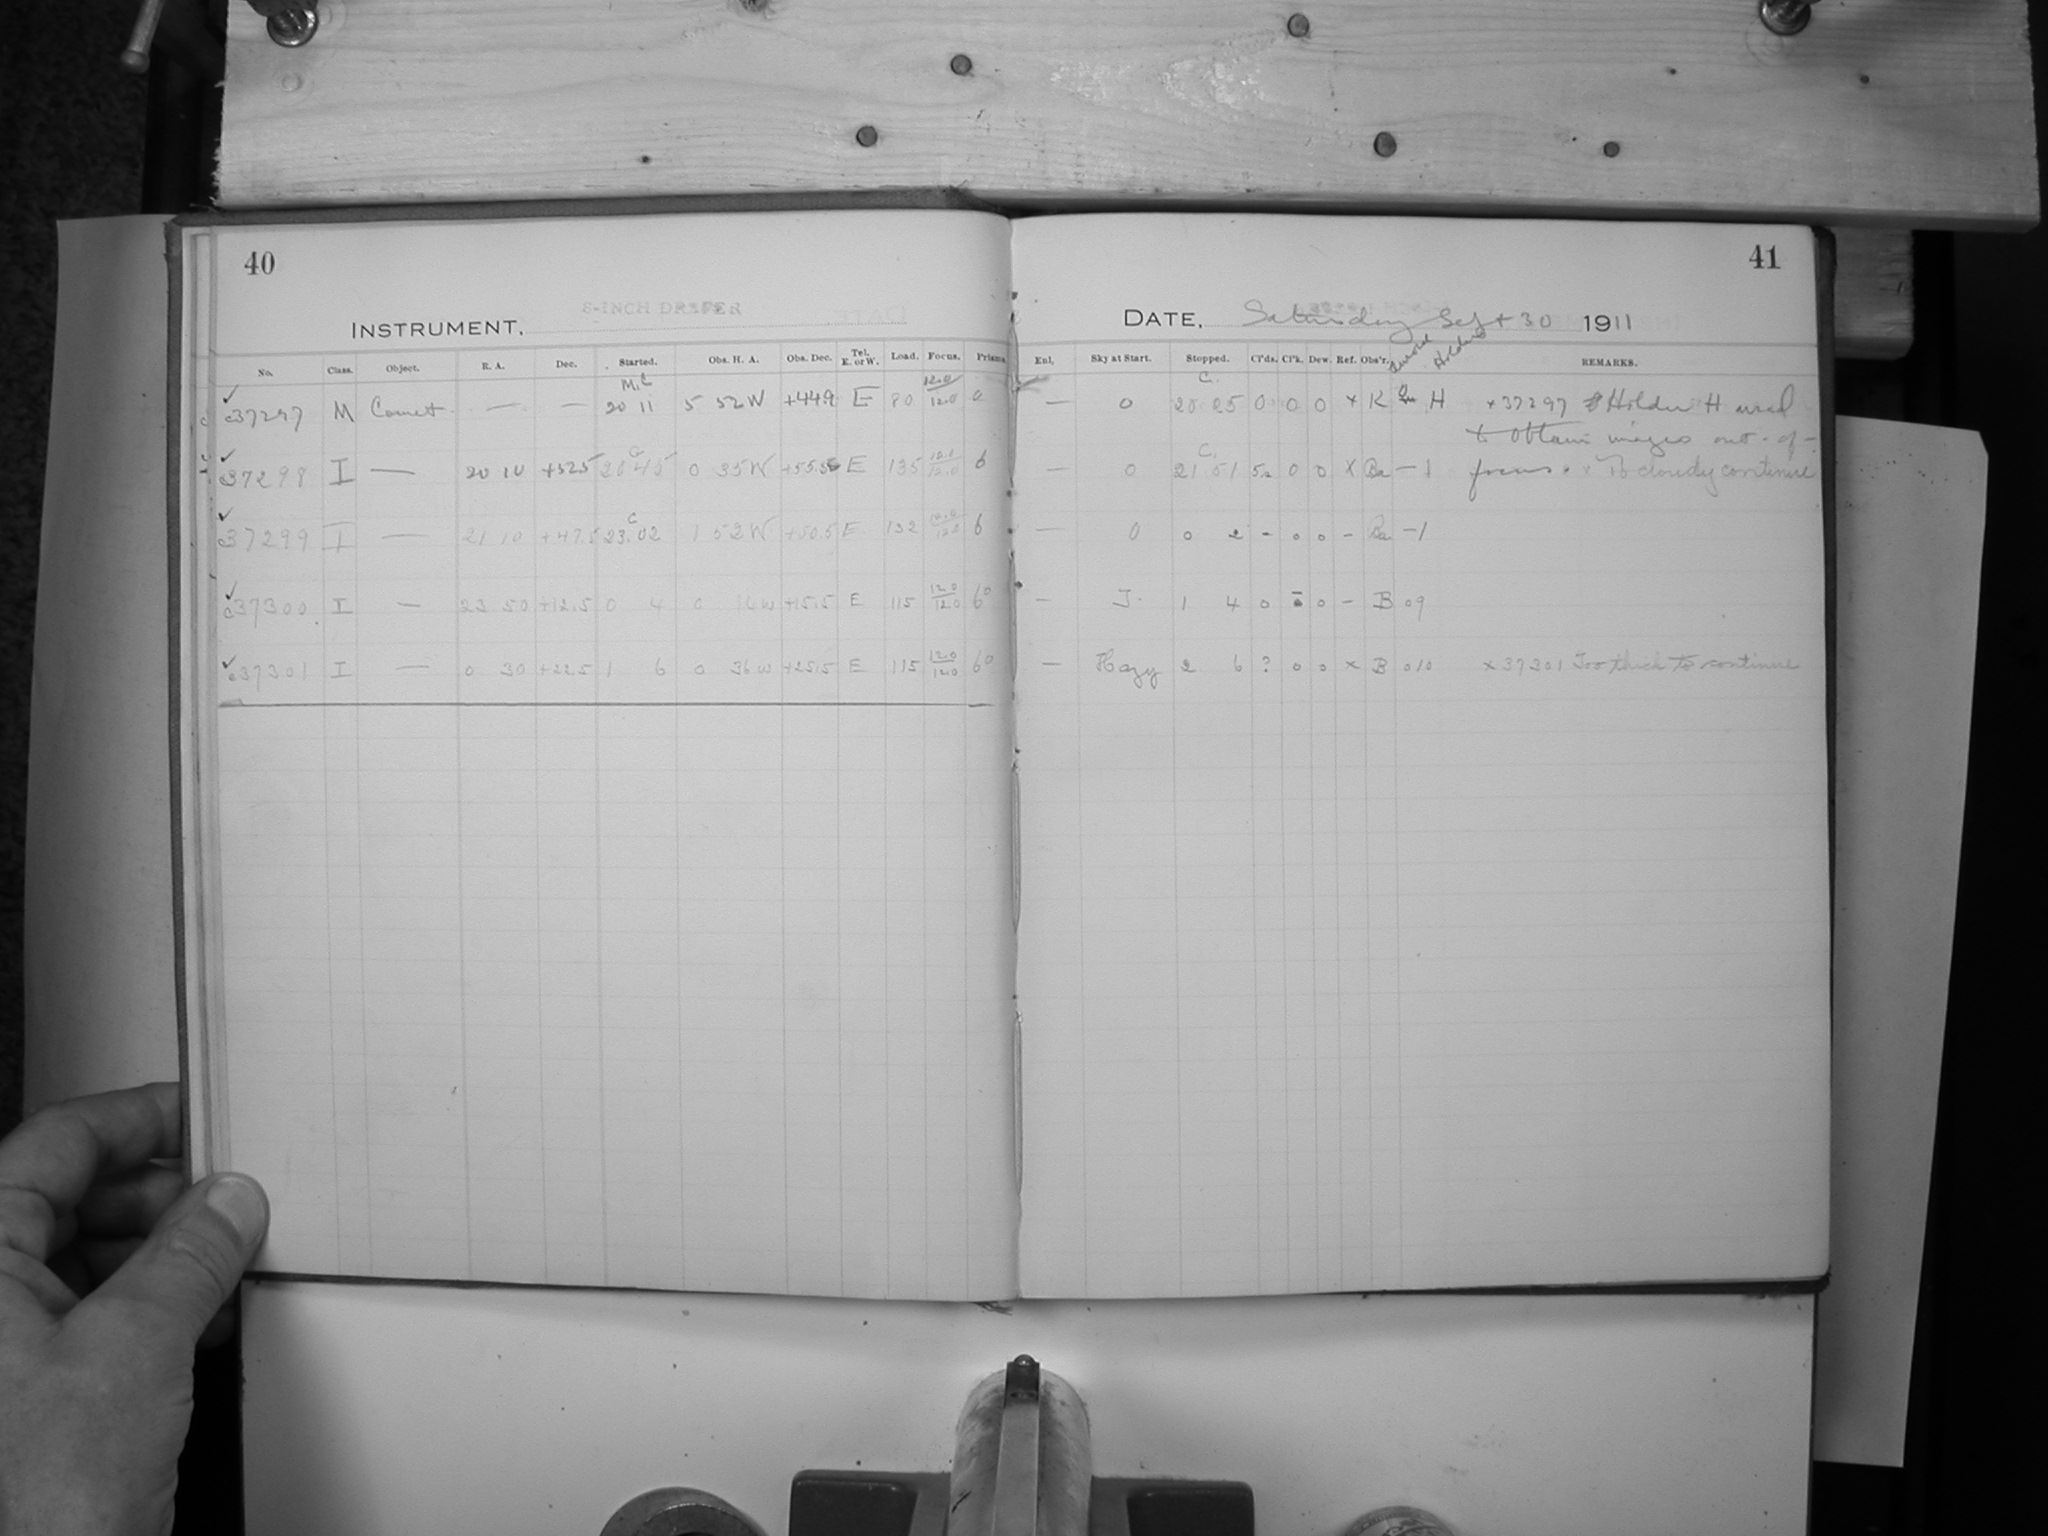 40
8-INCH DRAPER
INSTRUMENT,
No. Class. Object. R. A. Dec. Started. Obs. H. A. Obs. Dec. Tel. E. or W. Load. Focus. Prisms
c37297 M Comet — — 20 11 5 52 W +44.9 E 80 12.0/12.0 0
c37298 I — 20 10 +52.5 20 45 0 35 W +55.5 E 135 12.0 6
c37299 I — 21 10 +47.5 23.02 1 52 W +50.5 E 132 12.0/12.0 6
c37300 I — 23 50 +12.5 0 4 0 14 W +15.5 E 115 12.0/12.0 6
c37301 I — 0 30 +22.5 1 6 0 36 W +25.5 E 115 12.0/12.0 6
41
DATE, Saturday Sept 30 1911
Holder
Enl. Sky at Start. Stopped. Cl'ds. Cl'k. Dew. Ref. Obs'r. REMARKS.
— 0 20 25 0 0 0 x K H x37297 Holder H used
to obtain images out-of-
— 0 21 51 5 0 0 x Ba — 1 focus. x To cloudy continue
— 0 0 2 - 0 0 - Ba — 1
— 1 4 0 0 0 - B 09
— Hazy 2 6 ? 0 0 x B 010 x37301 Too thick to continue